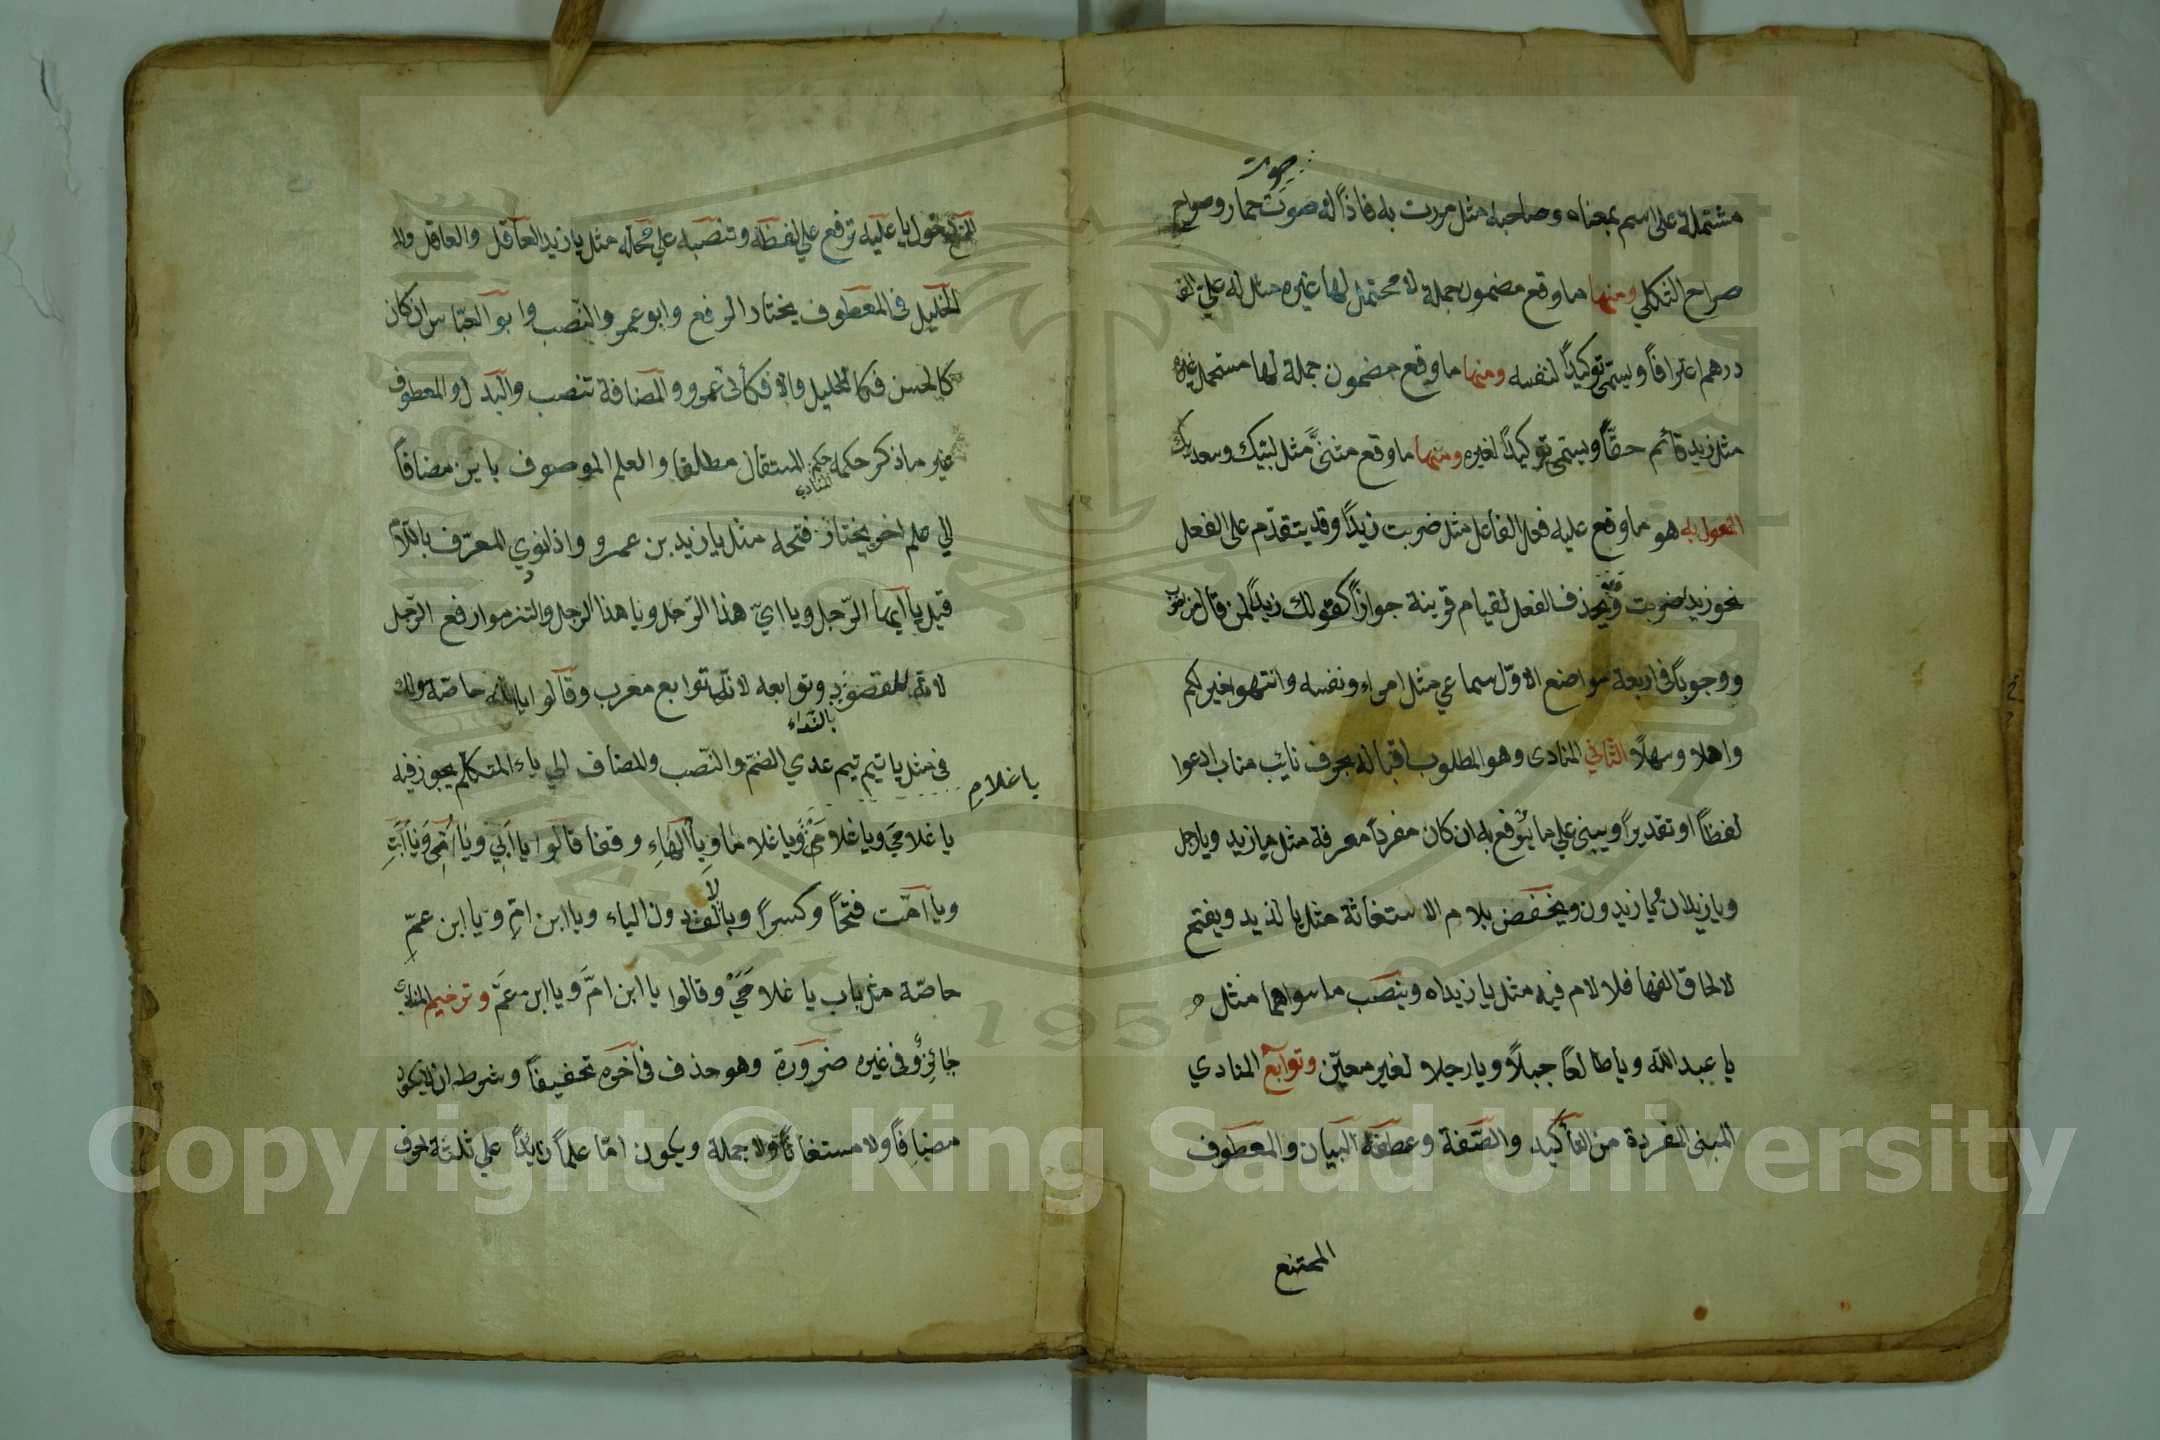 صوت
مشتملة على اسم بمعناه وصاحبه مثل مررت به فاذا له صوت صوت حمار وصراخ
صراخ الثكلي ومنها ما وقع مضمون جملة لا محتمل لها غيره مثل له علي الف
درهم اعترافاً ويسمى توكيدًا لنفسه ومنها ما وقع مضمون جملة لها محتمل غيره
مثل زيد قائم حقًّا ويسمى توكيدًا لغيره ومنها ما وقع مثنىً مثل لبيك وسعديك
المفعول به هو ما وقع عليه فعل الفاعل مثل ضربت زيدًا وقد يتقدّم على الفعل
نحو زيدا ضربت وقد يحذف الفعل لقيام قرينة جوازاً كقولك زيدًا لمن قال من اضرب
ووجوباً في اربعة مواضع الاوّل سماعي مثل امراء ونفسه وانتهوا خيرا لكم
واهلا وسهلاً الثاني المنادى وهو المطلوب اقباله بحرف نائب مناب ادعوا
لفظاً او تقديراً ويبنى علي ما يُرفع به ان كان مفرداً معرفة مثل يا زيد ويا رجل
ويا زيدان ويا زيدون ويخفض بلام الاستغاثة مثل يا لزيد ويفتح
لالحاق الفها فلا لام فيه مثل يا زيداه وينصب ما سواهما مثل
يا عبد الله ويا طالعاً جبلاً ويا رجلا لغير معيّن وتوابع المنادي
المبنى المفردة من التأكيد والصّفة وعطف البيان والمعطوف
الممتنع
الممتنع دخول يا عليه ترفع علي لفظه وتنصبه علي محله مثل يا زيد العاقل والعاقل
الخليل في المعطوف يختار الرفع وابو عمرو النّصب وابو العبّاس ان كان
كالحسن فكالخليل والا فكأبي عمرو والمضافة تنصب والبدل والمعطوف
غير ما ذكر حكمه حكم المستقل مطلقا والعلم الموصوف بابن مضافاً
المنادي
الي علم اخر يختار فتحه مثل يا زيد بن عمرو واذا نودي المعرّف باللاّم
قيل يا ايّها الرّجل ويا ايّ هذا الرّجل ويا هذا الرجل والتزموا رفع الرّجل
لانّه المقصود وتوابعه لانّها توابع معرب وقالوا يا الله خاصّة ولك
بالنداء
في مثل يا تيم تيم عدي الضمّ والنّصب والمضاف الي ياء المتكلم يجوز فيه
يا غلامِ
يا غلاميَ ويا غلاميْ ويا غلاما وبالهاءِ وقفا قالوا يا ابي ويا امّي ويا ابتِ
ويا امّت فتحاً وكسراً وبالالف دون الياء ويا ابن امِّ ويا ابن عمِّ
خاصّة مثل باب يا غلامي وقالوا يا ابن امَّ ويا ابن عمَّ وترخيم المنادي
جائزٌ وفي غيره ضرورة وهو حذف في آخره تخفيفاً وشرطه ان لا يكون
مضافاً ولا مستغاثاً ولا جملة ويكون امّا علماً زائداً علي ثلثة احرف
Copyright © King Saud University
1957